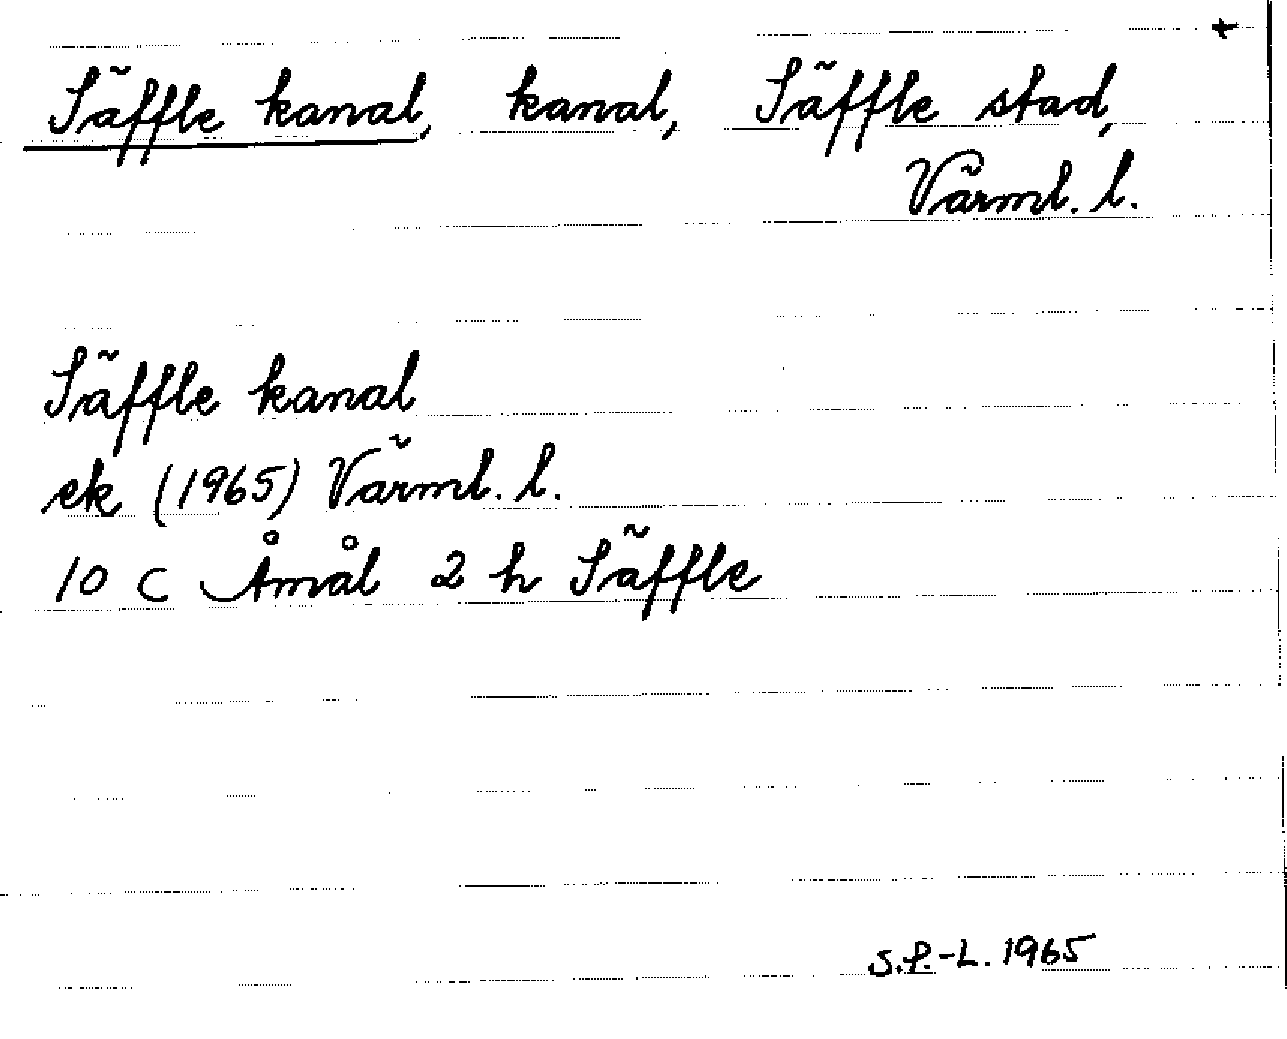 +
Säffle kanal, kanal, Säffle stad,
Värml. l.
Säffle kanal
ek (1965) Värml. l.
10 C Åmål 2 h Säffle
S.P.-L. 1965